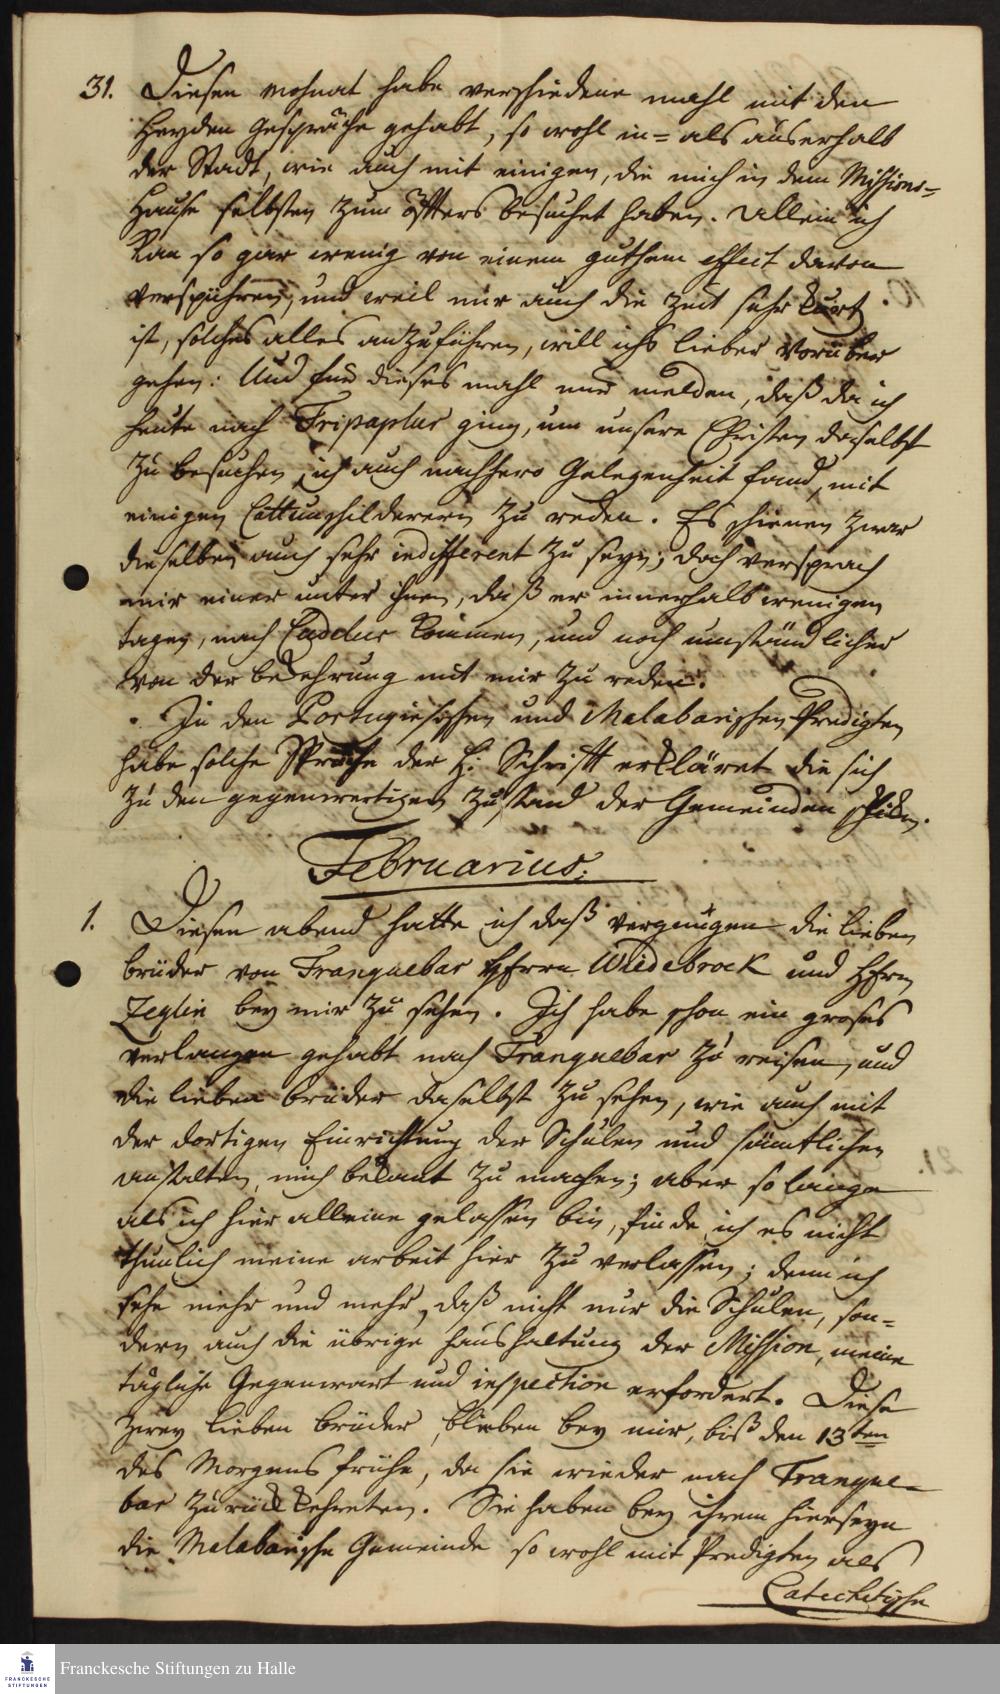 31. Diesen mohnat habe verschiedene mahl mit den
Heyden Gespräche gehabt, so wohl in= als auserhalb
der Stadt, wie auch mit einigen, die mich in dem Missions=
Hause selbsten zum öftters besuchet haben. Allein ich
kan so gar wenig von einem guthem effect davon
verspühren, und weil mir auch die Zeit sehr kurtz
ist, solches alles anzuführen, will ichs lieber vorüber
gehen: Und für dieses mahl nur melden, daß da ich
heute nach Tripaplur ging, um unsere Christen daselbst
zu besuchen, ich auch nachhero Gelegenheit fand, mit
einigen Cattunschilderern zu reden. Es schienen zwar
dieselben auch sehr indifferent zu seyn; doch versprach
mir einer unter ihnen, daß er innerhalb wenigen
tagen, nach Cudelur kommen, und noch umständlicher
von der bekehrung mit mir zu reden.
In den Portugiesischen und Malabarischen Predigten
habe solche Sprüche der H: Schrifft erkläret die sich
zu den gegenwertigen Zustand der Gemeinden schicken.
Februarius:
1. Diesen abend hatte ich daß vergnügen die lieben
brüder von Tranquebar HErrn Wiedebrock und HErrn
Zeglin bey mir zu sehen. Ich habe schon ein groses
verlangen gehabt nach Tranquebar zu reisen, und
die lieben brüder daselbst zu sehen, wie auch mit
der dortigen Einrichtung der Schulen und sämtlichen
anstalten, mich bekant zu machen; aber so lange
als ich hier alleine gelassen bin, finde ich es nicht
thunlich meine arbeit hier zu verlassen; denn ich
sehe mehr und mehr, daß nicht nur die Schulen, son=
dern auch die übrige haushaltung der Mission, meine
tägliche Gegenwart und inspection erfordert. Diese
zwey lieben brüder, blieben bey mir, biß den 13ten
des Morgens frühe, da sie wieder nach Tranque=
bar zurük kehreten. Sie haben bey ihrem hierseyn
die Malabarische Gemeinde so wohl mit Predigten als
Catechetische
Franckesche Stiftungen zu Halle
FRANCKESCHE
STIFTUNGEN